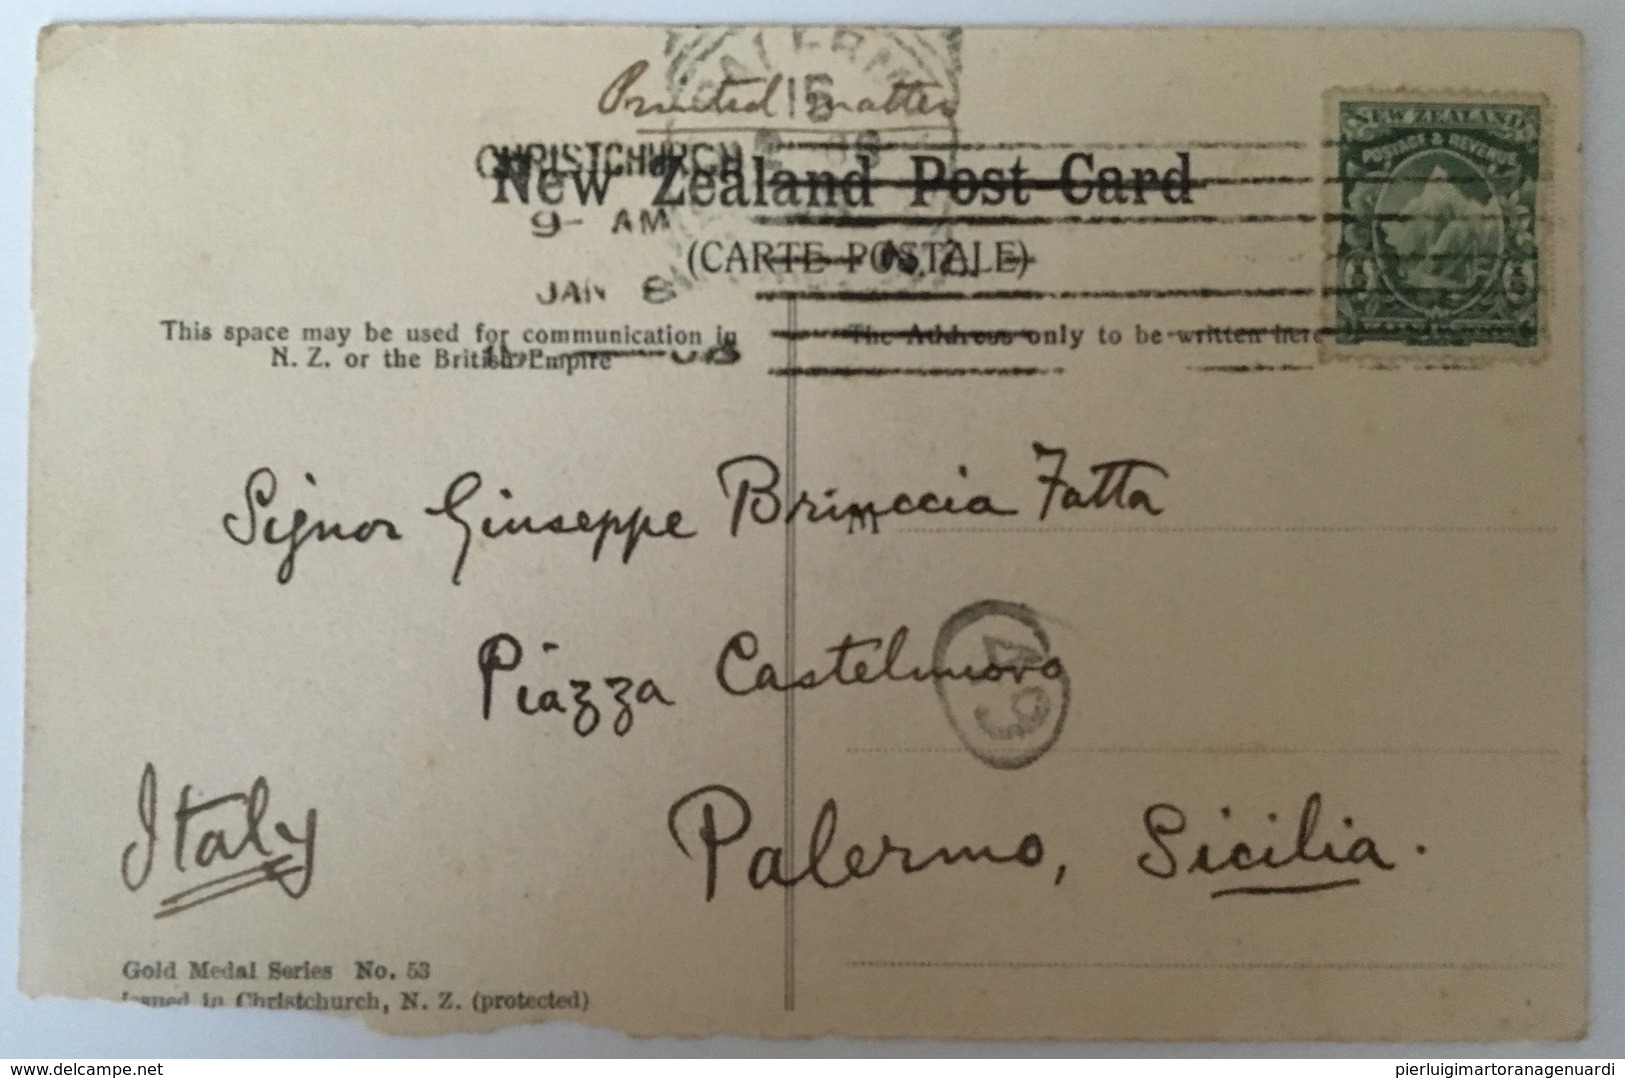 PALERMO
15
Printed matter
CHRISTCHURCH
New Zealand Post Card
9- AM
(CARTE POSTALE)
N.Z.
JAN 8
This space may be used for communication in
N. Z. or the British Empire
The Address only to be written here
NEW ZEALAND
POSTAGE & REVENUE
Signor Giuseppe Brinccia Fatta
M
Piazza Castelnuovo
49
Italy
Palermo, Sicilia.
Gold Medal Series No. 53
Issued in Christchurch, N. Z. (protected)
delcampe.net
pierluigimartoranagenuardi